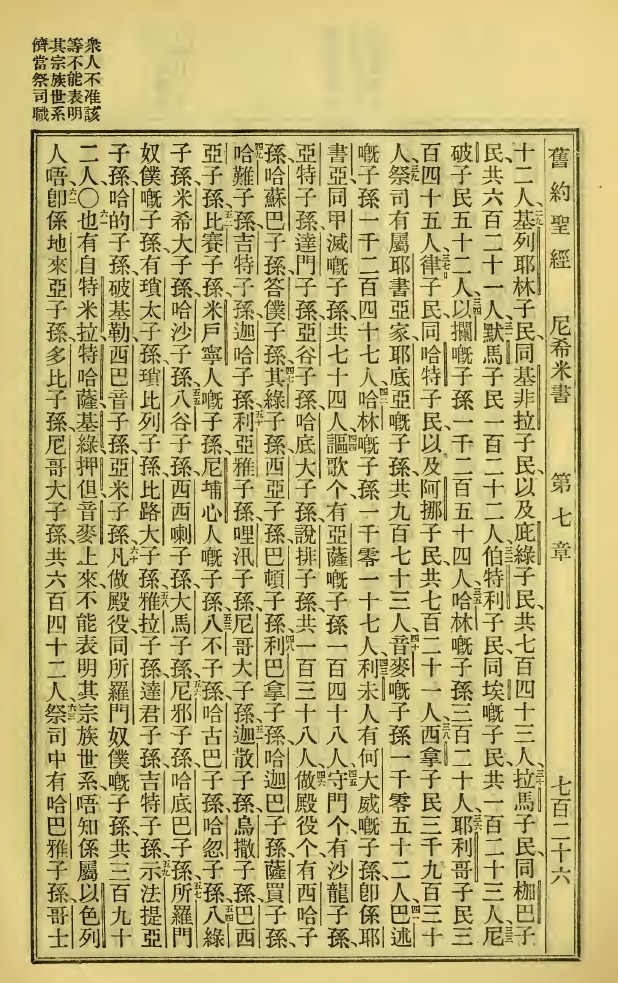 舊約聖經 尼希米書 第七章 七百二十六
十二人、基列耶林子民、同基非拉子民、以及庇綠子民、共七百四十三人、拉馬子民、同枷巴子
民、共六百二十一人、默馬子民一百二十二人、伯特利子民、同埃嘅子民、共一百二十三人、尼
破子民五十二人、以攔嘅子孫一千二百五十四人、哈林嘅子孫三百二十人、耶利哥子民三
百四十五人、律子民、同哈特子民、以及阿挪子民、共七百二十一人、西拿子民三千九百三十
人、祭司有屬耶書亞家耶底亞嘅子孫、共九百七十三人、音麥嘅子孫一千零五十二人、巴述
嘅子孫一千二百四十七人、哈林嘅子孫一千零一十七人、利未人有何大威嘅子孫、卽係耶
書亞同甲滅嘅子孫、共七十四人、謳歌个有亞薩嘅子孫一百四十八人、守門个有沙龍子孫、
亞特子孫、達門子孫、亞谷子孫、哈底大子孫、說排子孫、共一百三十八人、做殿役个有西哈子
孫、哈蘇巴子孫、答僕子孫、其綠子孫、西亞子孫、巴頓子孫、利巴拿子孫、哈迦巴子孫、薩買子孫、
哈難子孫、吉特子孫、迦哈子孫、利亞雅子孫、哩汛子孫、尼哥大子孫、迦散子孫、烏撒子孫、巴西
亞子孫、比賽子孫、米戶寧人嘅子孫、尼埔心人嘅子孫、八不子孫、哈古巴子孫、哈忽子孫、八綠
子孫、米希大子孫、哈沙子孫、八谷子孫、西西喇子孫、大馬子孫、尼邪子孫、哈底巴子孫、所羅門
奴僕嘅子孫、有瑣太子孫、瑣比列子孫、比路大子孫、雅拉子孫、達君子孫、吉特子孫、示法提亞
子孫、哈的子孫、破基勒西巴音子孫、亞米子孫、凡做殿役同所羅門奴僕嘅子孫、共三百九十
二人、〇也有自特米拉、特哈薩、基綠、押但、音麥、上來、不能表明其宗族世系、唔知係屬以色列
人唔、卽係地來亞子孫、多比子孫、尼哥大子孫、共六百四十二人、祭司中有哈巴雅子孫、哥士
衆人不准該
等不能表明
其宗族世系
儕當祭司職